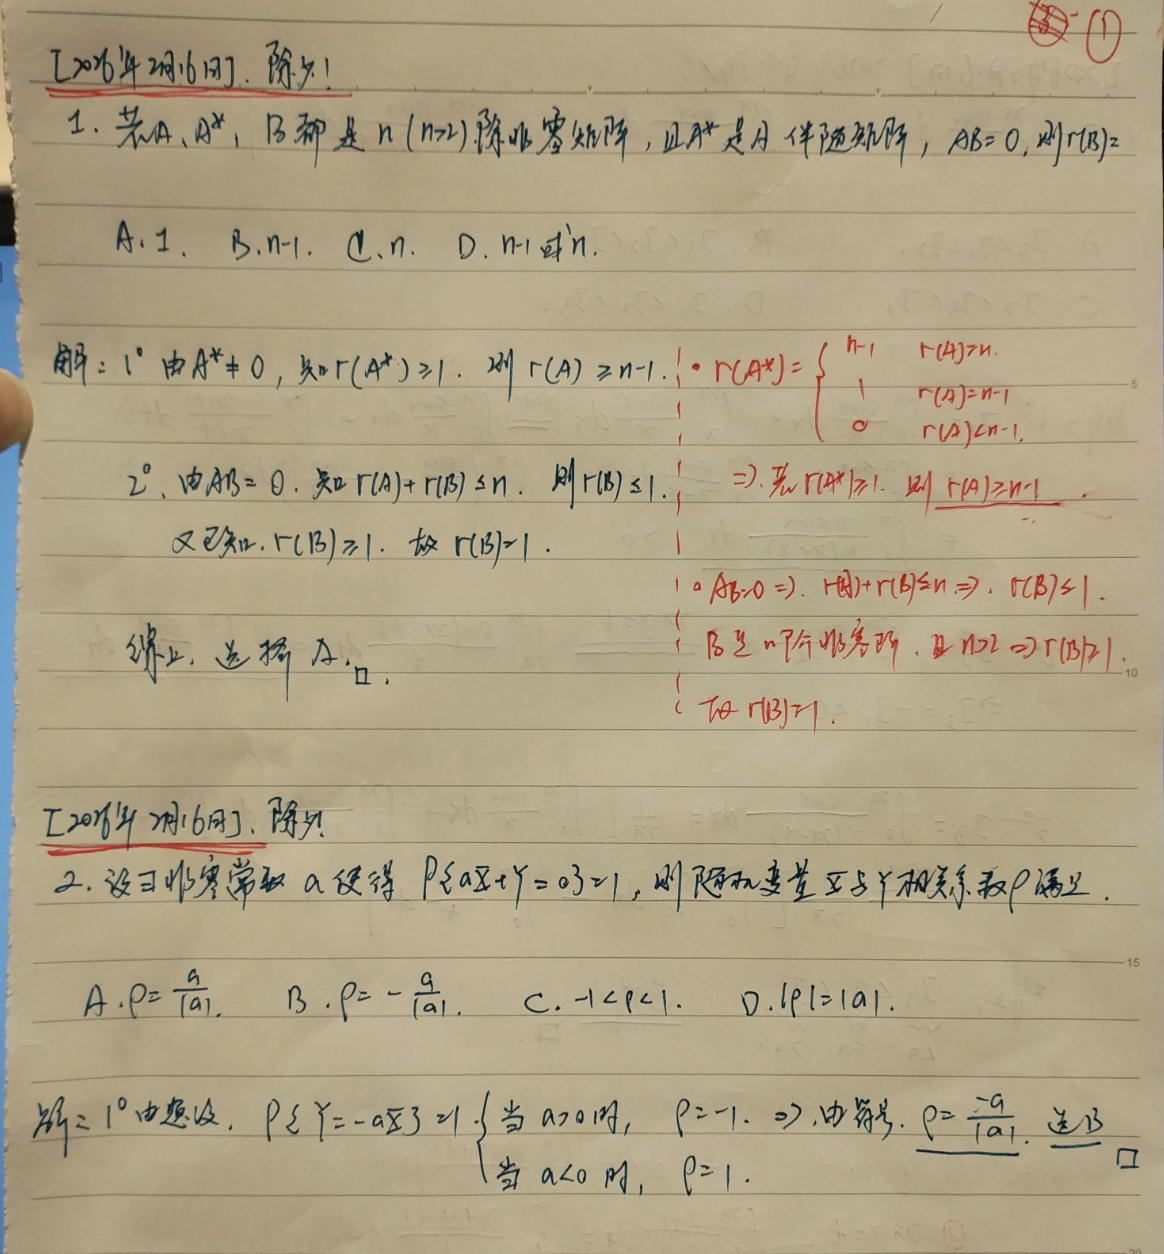 ①
[2026年2月16日]. 除夕!
1. 若A、A*, B都是n(n>2)阶非零矩阵, 且A*是A伴随矩阵, AB=0, 则r(B)=
A. 1. B. n-1. C. n. D. n-1或n.
解: 1° 由A*≠0, 知r(A*)≥1. 则 r(A)≥n-1.
2°. 由AB=0. 知r(A)+r(B)≤n. 则r(B)≤1.
又已知. r(B)≥1. 故 r(B)=1.
综上, 选择A. □.
• r(A*)= { n-1 r(A)=n.
1 r(A)=n-1
0 r(A)<n-1.
=>. 若r(A*)≥1. 则 r(A)≥n-1.
• AB=0 =>. r(A)+r(B)≤n =>. r(B)≤1.
B是n阶非零阵. 且n>2 => r(B)≥1.
故 r(B)=1.
[2026年2月16日]. 除夕!
2. 设∃非零常数 a 使得 P{aX+Y=0}=1, 则随机变量X与Y相关系数ρ满足.
A. ρ=a/|a|. B. ρ=-a/|a|. C. -1<ρ<1. D. |ρ|=|a|.
解: 1° 由题设. P{Y=-aX}=1. { 当 a>0时, ρ=-1. =>. 由符号. ρ=-a/|a|. 选B □
当 a<0 时, ρ=1.